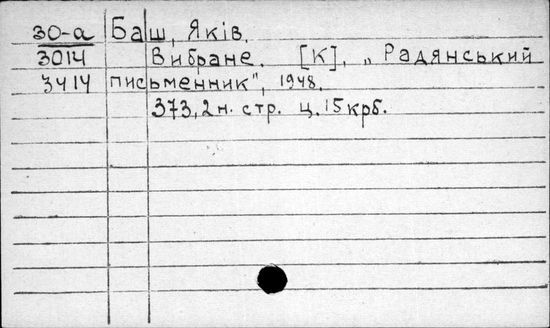 30-а Баш, Яків.
3014 Вибране. [К], „Радянський
3414 письменник", 1948.
373, 2н. стр. ц. 15 крб.